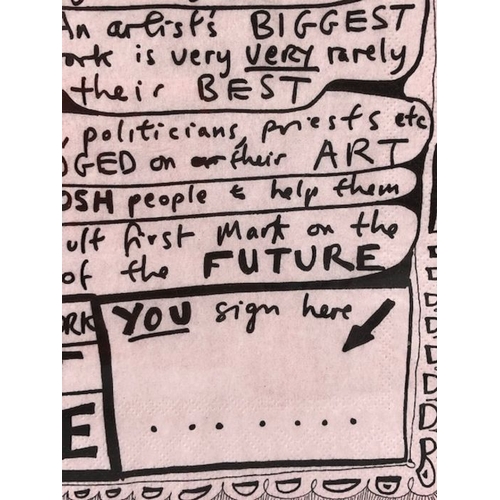 An artist's BIGGEST
ork is very VERY rarely
their BEST
, politicians, priests etc
GED on their ART
OSH people & help them
ult first Mark on the
of the FUTURE
ORK
YOU sign here
E
. . . . . . .